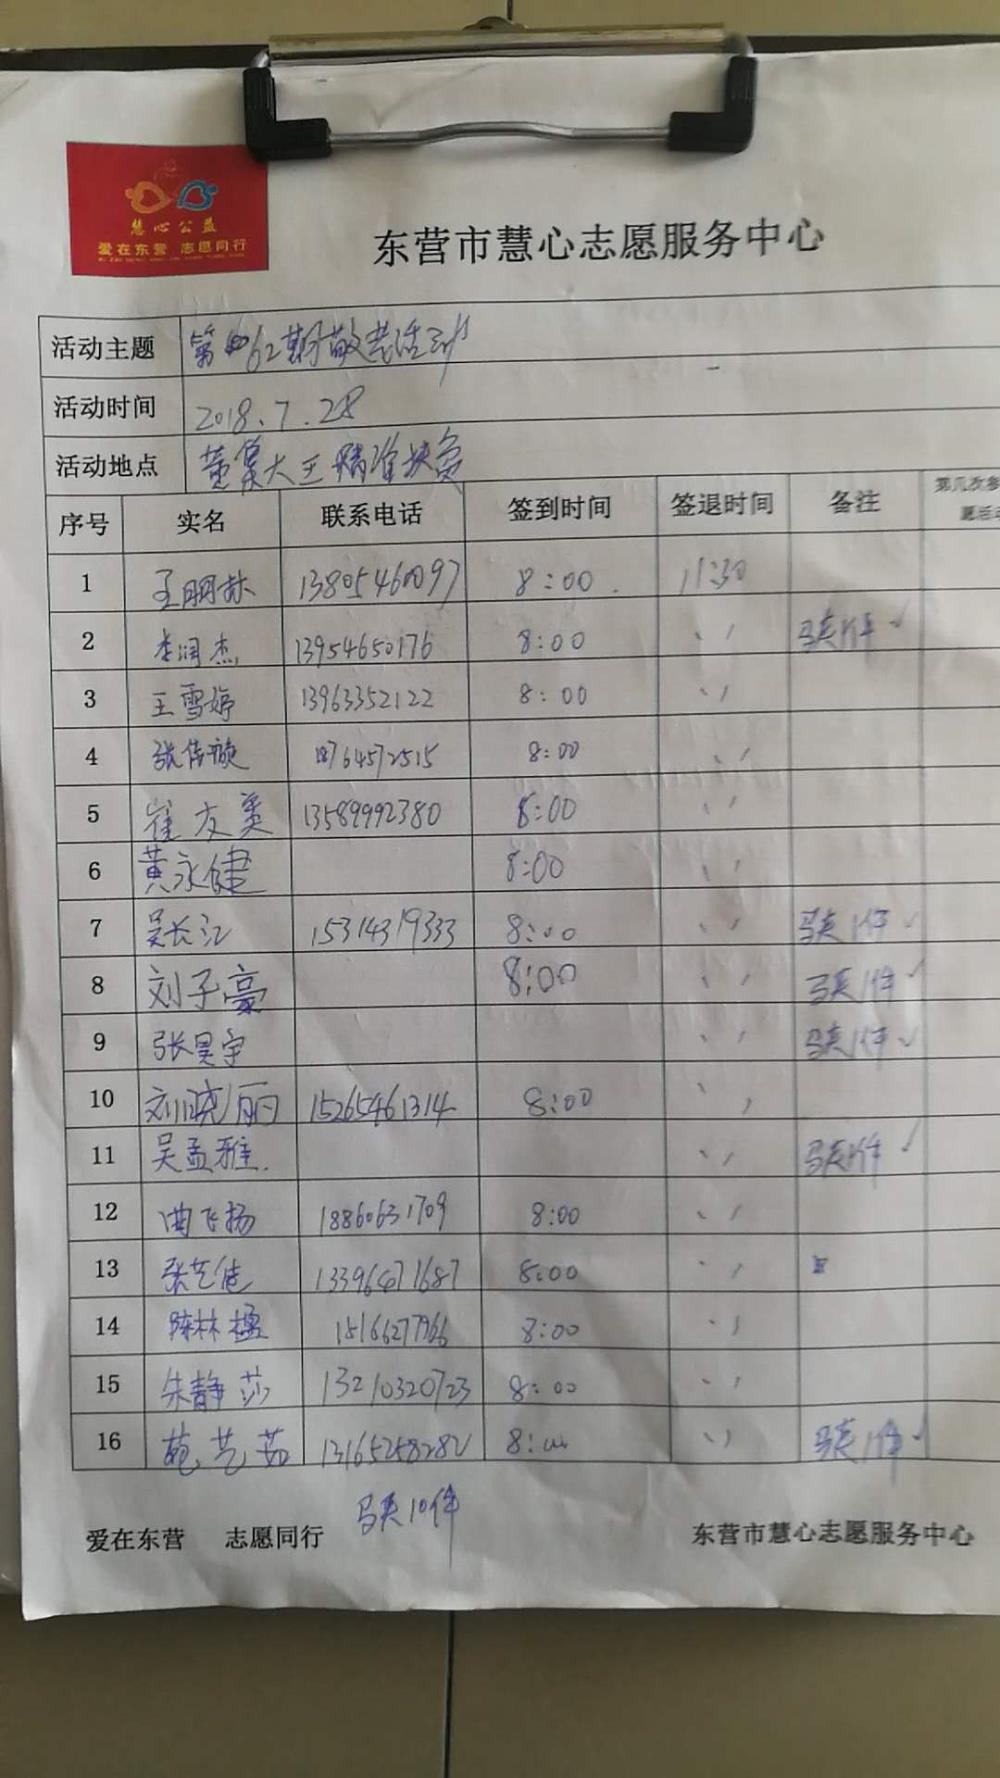 慧心公益
爱在东营 志愿同行
东营市慧心志愿服务中心
活动主题 第62期敬老活动
活动时间 2018.7.28
活动地点 董集大王
序号 实名 联系电话 签到时间 签退时间 备注 第几次参
愿活动
1 王明林 13805460097 8:00 11:30
2 李润杰 13954650176 8:00 、、 马夹1件 ✓
3 王雪婷 13963352122 8:00 、、
4 张倩璇 18764572515 8:00 、、
5 崔友美 13589992380 8:00 、、
6 黄永健 8:00 、、
7 吴长江 15314319333 8:00 、、 马夹1件 ✓
8 刘子豪 8:00 、、 马夹1件 ✓
9 张昊宇 、、 马夹1件 ✓
10 刘晓丽 15265461314 8:00 、、
11 吴孟雅. 、、 马夹1件 ✓
12 曲飞扬 18860631709 8:00 、、
13 张艺佳 13396471687 8:00 、、
14 陈林楹 15166277966 8:00 、、
15 朱静莎 13210320723 8:00 、、
16 苑艺茹 13165258282 8:00 、、 马夹1件 ✓
马夹10件
爱在东营 志愿同行 东营市慧心志愿服务中心